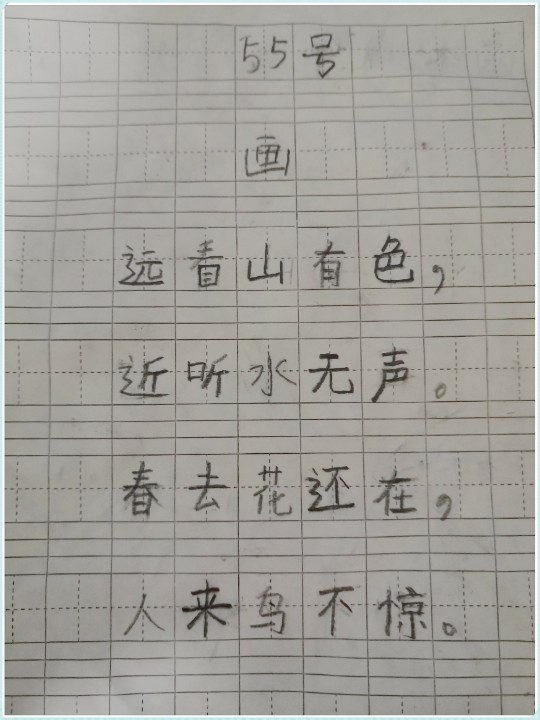 55号
画
远看山有色，
近听水无声。
春去花还在，
人来鸟不惊。